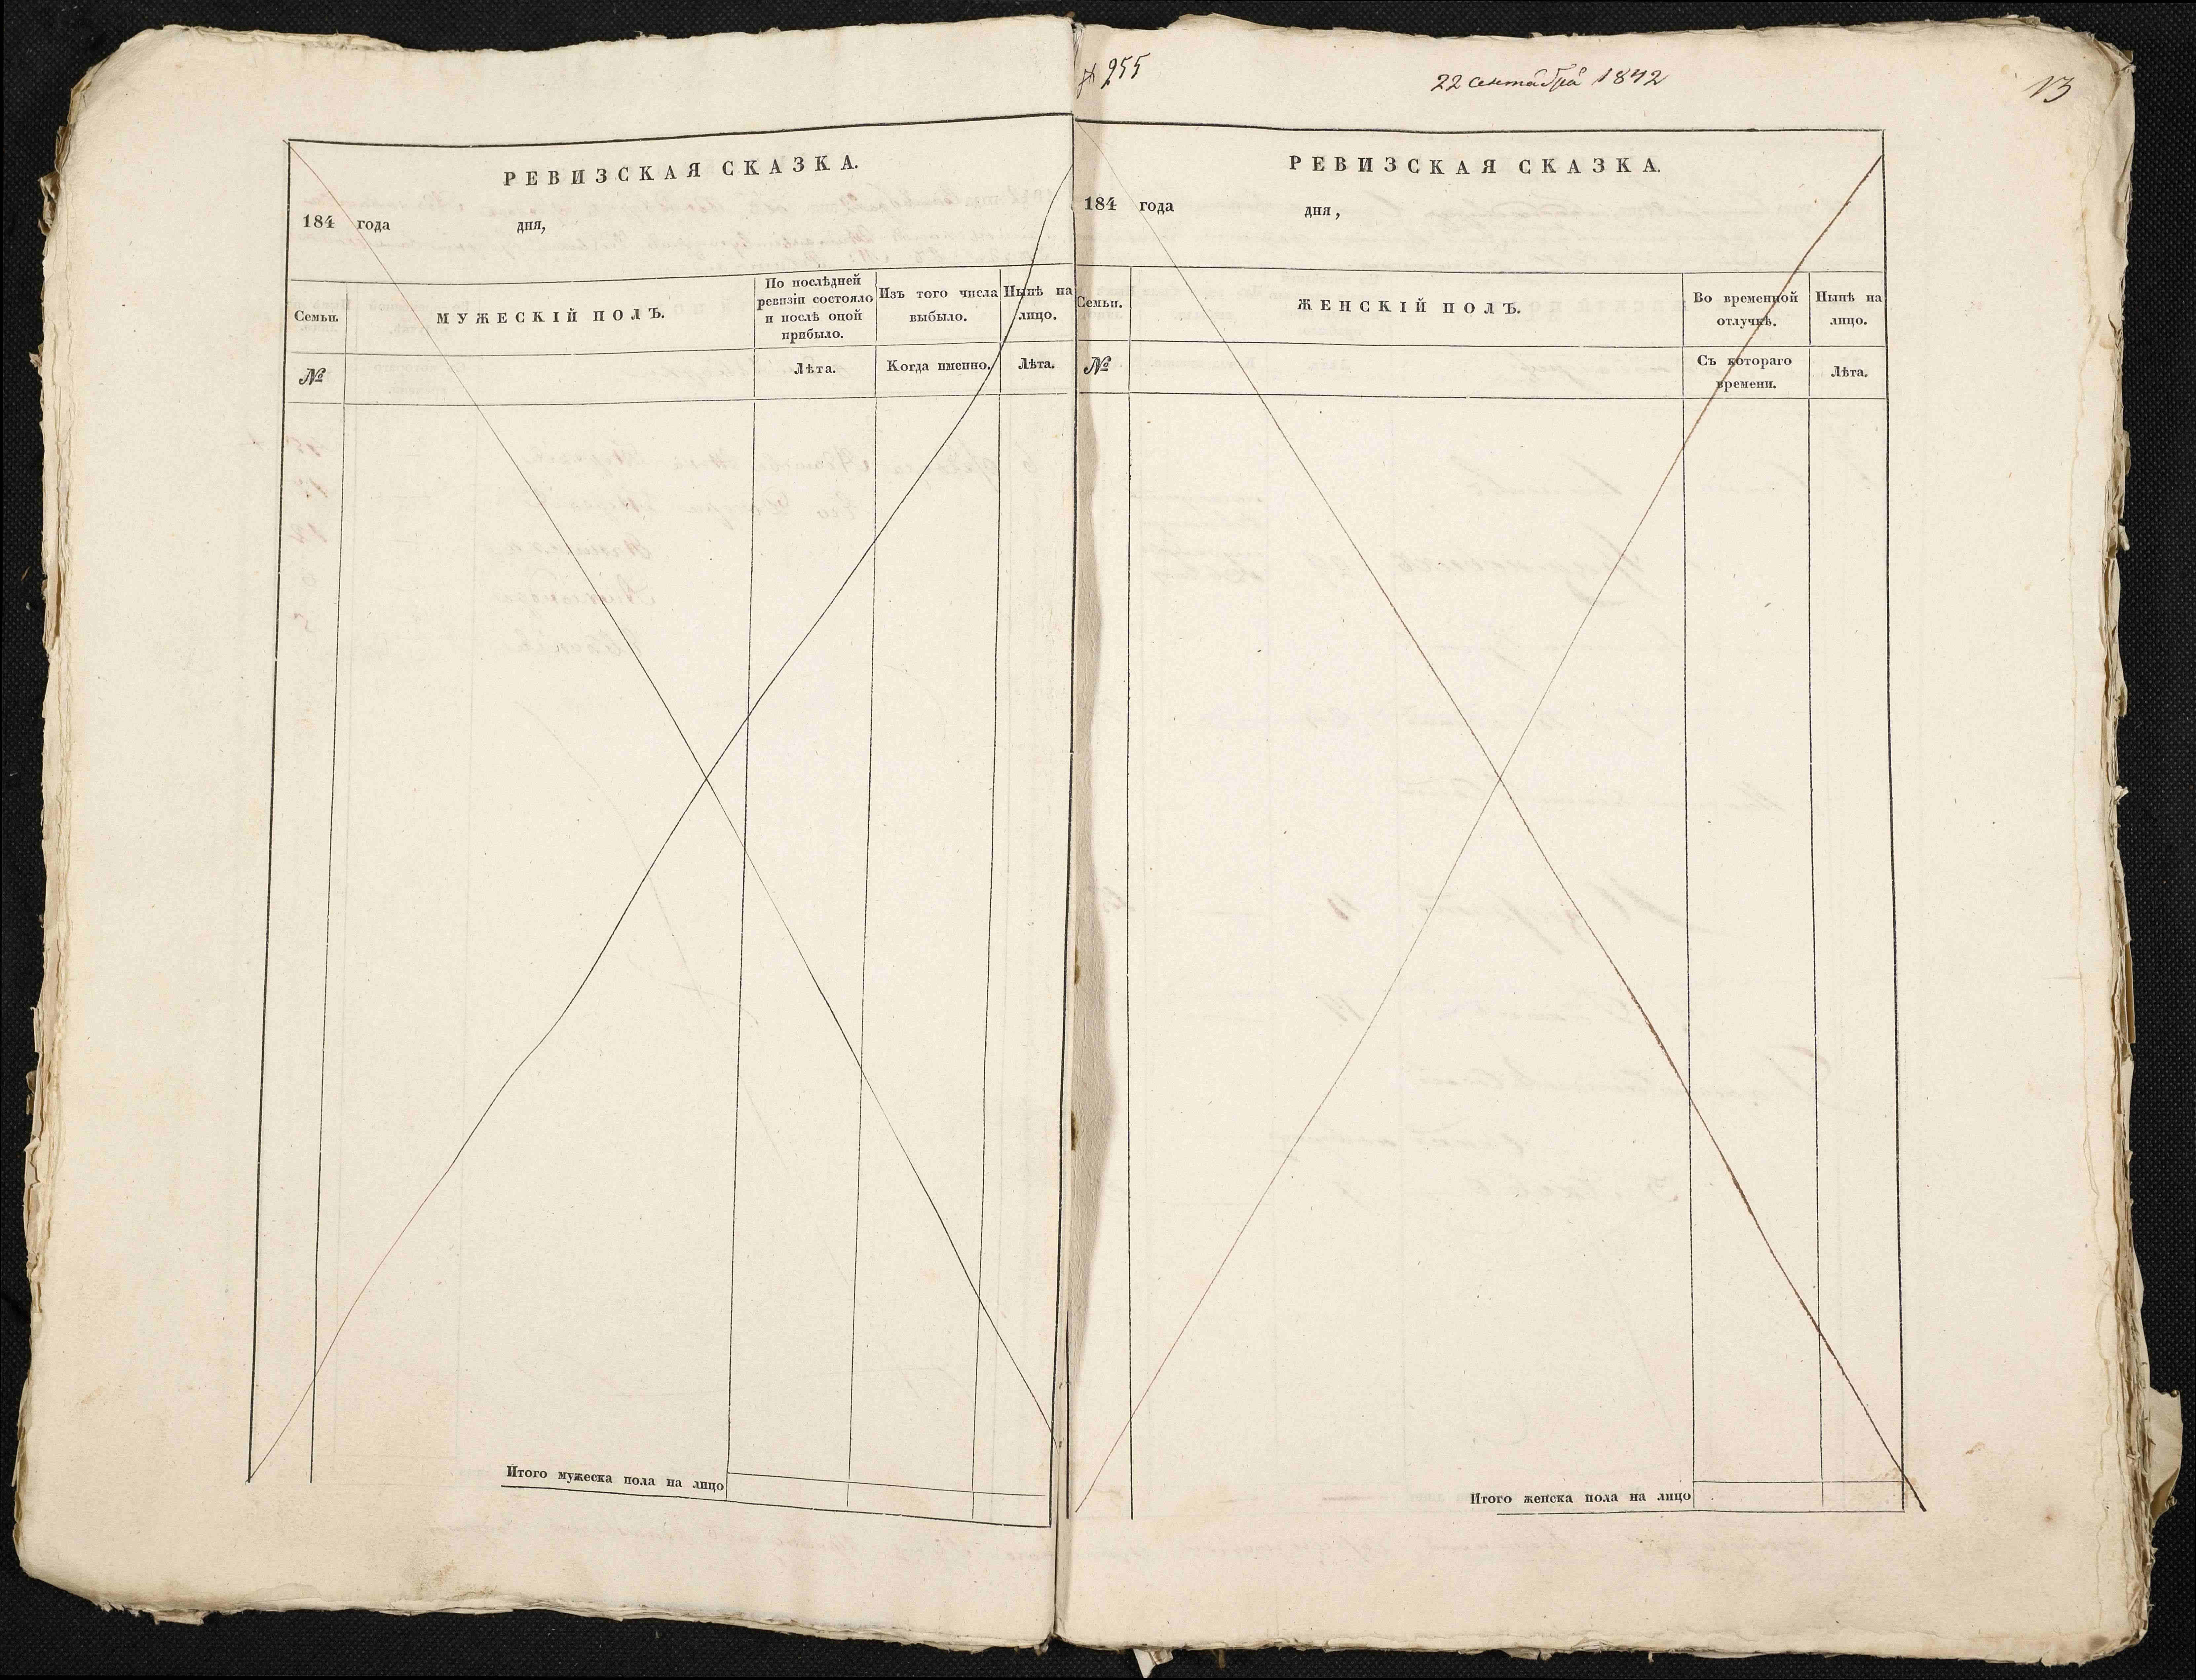 РЕВИЗСКАЯ СКАЗКА.
184 года дня,
Семьи.
МУЖЕСКІЙ ПОЛЪ.
По послѣдней
ревизіи состояло
и послѣ оной
прибыло.
Изъ того числа
выбыло.
Нынѣ на
лицо.
№
Лѣта.
Когда именно.
Лѣта.
Итого мужеска пола на лицо
№ 255
22 сентября 1842
13
РЕВИЗСКАЯ СКАЗКА.
184 года дня,
Семьи.
ЖЕНСКІЙ ПОЛЪ.
Во временной
отлучкѣ.
Нынѣ на
лицо.
№
Съ котораго
времени.
Лѣта.
Итого женска пола на лицо